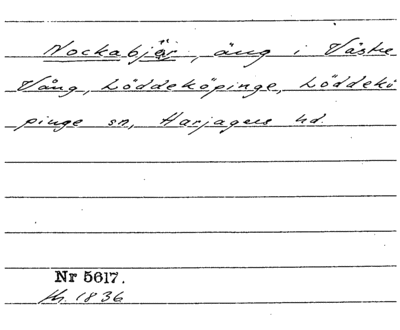 Nockabjär, äng i Västre
Vång, Löddeköpinge, Löddekö
pinge sn, Harjagers hd.
Nr 5617.
1836